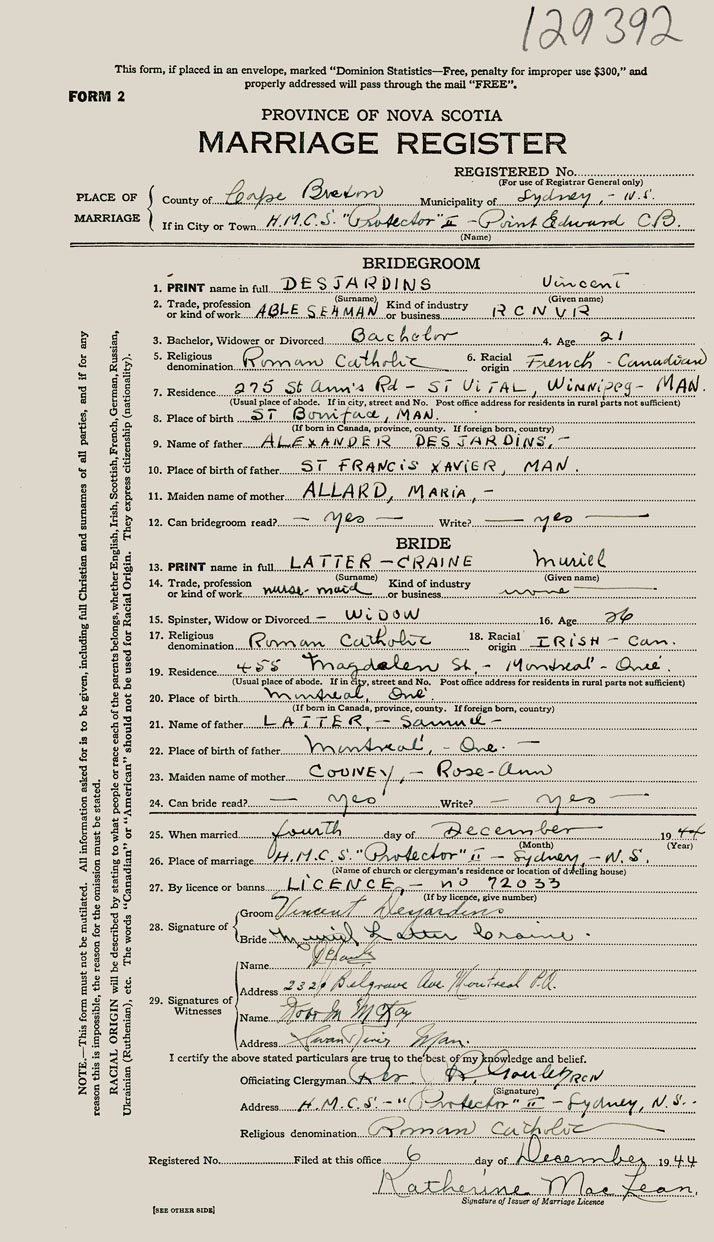 129392
This form, if placed in an envelope, marked “Dominion Statistics—Free, penalty for improper use $300,” and
properly addressed will pass through the mail “FREE”.
FORM 2
PROVINCE OF NOVA SCOTIA
MARRIAGE REGISTER
REGISTERED No.
(For use of Registrar General only)
PLACE OF MARRIAGE
County of Cape Breton Municipality of Sydney, - N.S.
If in City or Town H.M.C.S. "Protector" II - Point Edward C.B.
(Name)
BRIDEGROOM
1. PRINT name in full DESJARDINS Vincent
(Surname) (Given name)
2. Trade, profession or kind of work ABLE SEAMAN Kind of industry or business RCNVR
3. Bachelor, Widower or Divorced Bachelor 4. Age 21
5. Religious denomination Roman Catholic 6. Racial origin French - Canadian
7. Residence 275 St Ann's Rd - ST VITAL, Winnipeg - MAN.
(Usual place of abode. If in city, street and No. Post office address for residents in rural parts not sufficient)
8. Place of birth ST Boniface, MAN.
(If born in Canada, province, county. If foreign born, country)
9. Name of father ALEXANDER DESJARDINS, -
10. Place of birth of father ST FRANCIS XAVIER, MAN.
11. Maiden name of mother ALLARD, MARIA, -
12. Can bridegroom read? - yes - Write? - yes -
BRIDE
13. PRINT name in full LATTER - CRAINE Muriel
(Surname) (Given name)
14. Trade, profession or kind of work nurse-maid Kind of industry or business none
15. Spinster, Widow or Divorced - WIDOW 16. Age 26
17. Religious denomination Roman Catholic 18. Racial origin IRISH - Can.
19. Residence 455 Magdalen St. - Montreal - Que.
(Usual place of abode. If in city, street and No. Post office address for residents in rural parts not sufficient)
20. Place of birth Montreal, Que
(If born in Canada, province, county. If foreign born, country)
21. Name of father LATTER, - Samuel -
22. Place of birth of father Montreal, - Que. -
23. Maiden name of mother COONEY, - Rose-Ann
24. Can bride read? - yes Write? - yes -
25. When married fourth day of December 1944
(Month) (Year)
26. Place of marriage H.M.C.S. "Protector" II - Sydney, - N.S.
(Name of church or clergyman's residence or location of dwelling house)
27. By licence or banns LICENCE, - no 72033
(If by licence, give number)
28. Signature of
Groom Vincent Desjardins
Bride Muriel Latter Craine.
29. Signatures of Witnesses
Name
Address 2326 Belgrave Ave Montreal P.Q.
Name McKay
Address Swan River Man.
I certify the above stated particulars are true to the best of my knowledge and belief.
Officiating Clergyman Rev RCN
(Signature)
Address H.M.C.S - "Protector" II - Sydney, N.S.
Religious denomination Roman Catholic
Registered No. Filed at this office 6 day of December 1944
Katherine MacLean.
Signature of Issuer of Marriage Licence
[SEE OTHER SIDE]
NOTE.—This form must not be mutilated. All information asked for is to be given, including full Christian and surnames of all parties, and if for any
reason this is impossible, the reason for the omission must be stated.
RACIAL ORIGIN will be described by stating to what people or race each of the parents belongs, whether English, Irish, Scottish, French, German, Russian,
Ukrainian (Ruthenian), etc. The words “Canadian” or “American” should not be used for Racial Origin. They express citizenship (nationality).